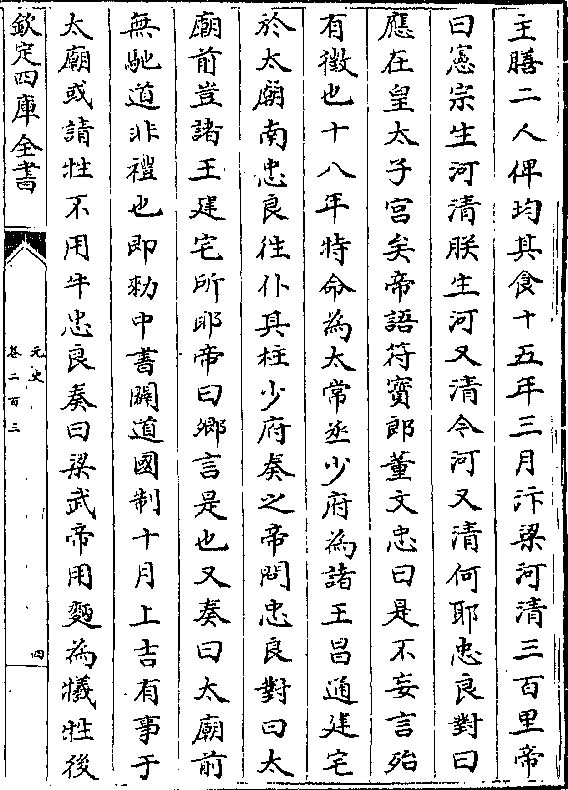 主膳二人俾均其食十五年三月汴梁河清三百里帝
曰憲宗生河清朕生河又清今河又清何耶忠良對曰
應在皇太子宮矣帝語符寶郎董文忠曰是不妄言殆
有徵也十八年特命為太常丞少府為諸王昌通建宅
於太廟南忠良往仆其柱少府奏之帝問忠良對曰太
廟前豈諸王建宅所耶帝曰卿言是也又奏曰太廟前
無馳道非禮也即勅中書闢道國制十月上吉有事于
太廟或請牲不用牛忠良奏曰梁武帝用麪為犧牲後
欽定四庫全書
元史
卷二百三
四